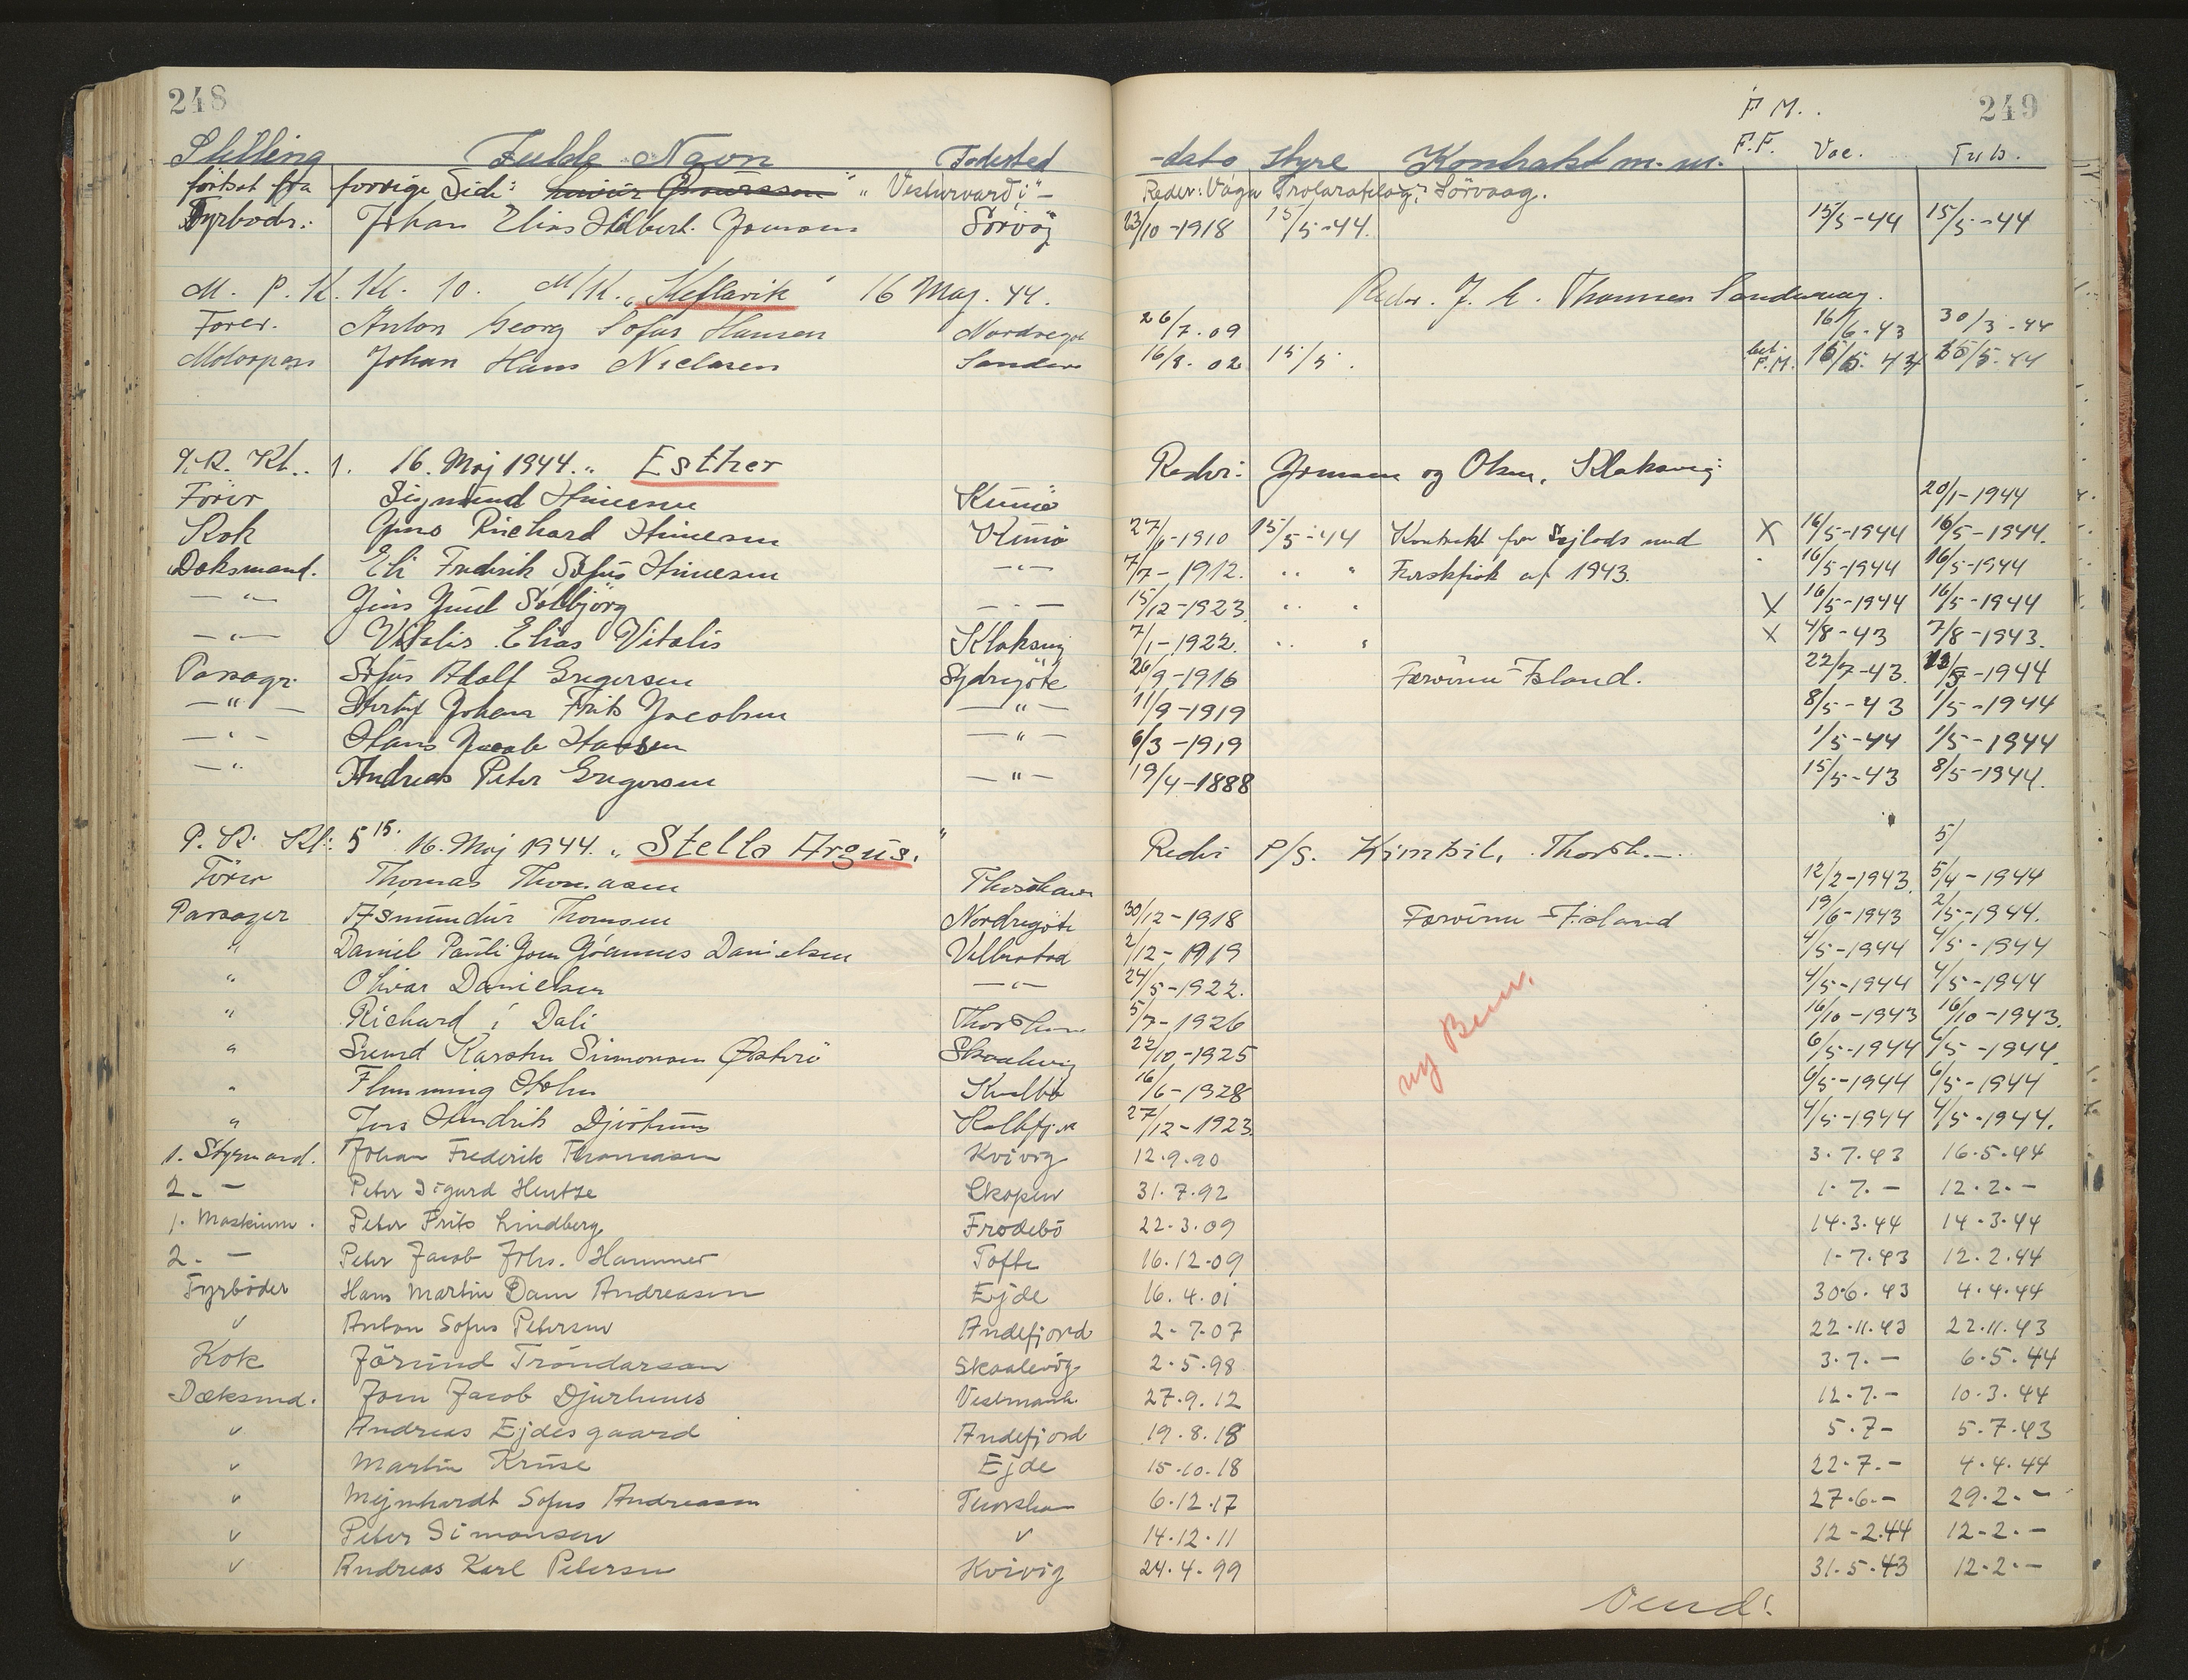 248
249
P M.
Stilling Fulde Navn Fødested -dato Hyre Kontrakt m. m. F.F. Vac. Tub.
fortsat fra forrige Side: "Vesturvardi" - Reder: Vága Trolarafelag, Sörvaag.
Fyrböder: Johan Elias Joensen Sörvåg 23/10-1918 15/5-44. 15/5-44 15/5-44
M. P. K. Kl. 10. M/K. "Keflavik" 16 Maj. 44. Reder. J. E. Thomsen Sandevaag.
Fører. Anton Georg Sofus Hansen Nordregøt 26/7.09 16/6-43 30/3-44
Motorpass Johan Hans Niclasen Sandev 16/8. 02 15/5. F.M. 44
P. K. Kl. 1. 16. Maj 1944. " Esther Rederi: Joensen og Olsen, Klaksvig:
Förer Sigmund Kunö 20/1-1944
Kok Jens Richard Kunö 27/6-1910 15/5-44 Kontrakt for Sejlads med X 16/5-1944 16/5-1944.
Dæksmand. Eli Fredrik Sofus -"- 7/7-1912. " " Ferskfisk af 1943. 16/5-1944 16/5-1944
-"- Jens Juul Solbjörg -"- 15/12-1923 " " X 16/5-1944 16/5-1944
-"- Vitalis Elias Vitalis Klaksvig 7/1-1922. " " X 4/8-43 7/8-1943.
Passagr. Sofus Adolf Gregersen Sydregöte 26/9-1916 Færöerne-Island. 22/7-43. -1944
-"- Johan Frits Jacobsen -"- 11/9-1919 8/5-43 1/5-1944
-"- Hans Jacob Hansen -"- 6/3-1919 1/5-44 1/5-1944
-"- Andreas Peter Gregersen -"- 19/4-1888 15/5-43 8/5-1944.
P. K. Kl: 5 15. 16. Maj 1944. "Stella Argus." Rederi P/S. Kimbil, Thorsh. 5/
Förer Thomas Thomasen Thorshavn 12/2-1943. 5/4-1944
Passager Asmundur Thomsen Nordregöte 30/12-1918 Færöerne-Island 19/6-1943 2/5-1944.
" Daniel Pauli Joen Jóannes Danielsen Velbestad 2/12-1919 4/5-1944 4/5-1944
" Olivar Danielsen -"- 24/5-1922. 4/5-1944 4/5-1944
" Richard í Dali Thorshavn 5/7-1926 16/10-1943 16/10-1943.
" Svend Karsten Simonsen Østerö Skaalevig 22/10-1925 6/5-1944 6/5-1944.
" Flemming Holm Kvalbö 16/6-1928 6/5-1944 6/5-1944
" Jens Hendrik Djurhuus Kolbfj. 27/12-1923. 4/5-1944 4/5-1944.
ny Bem.
1. Styrmand. Johan Frederik Thomasen Kvivig 12.9.90 3.7.43 16.5.44
2. - Peter Sigurd Hentze Skopen 31.7.92 1.7.- 12.2.-
1. Maskinm. Peter Frits Lindberg Frodebö 22.3.09 14.3.44 14.3.44
2. - Peter Jacob Johs. Hammer Tofte 16.12.09 1-7.43 12.2.44
Fyrböder Hans Martin Dam Andreasen Ejde 16.4.01 30.6.43 4.4.44
" Anton Sofus Petersen Andefjord 2-7.07 22.11.43 22.11.43
Kok Jörund Tróndarson Skaalevig 2.5.98 3.7.- 6.5.44
Dæksmd. Joen Jacob Djurhuus Vestmanh. 27.9.12 12.7.- 10.3.44
" Andreas Ejdesgaard Andefjord 19.8.18 5.7- 5.7.43
" Martin Kruse Ejde 15.10.18 22.7.- 4.4.44
" Mejnhardt Sofus Andreasen Thorshavn 6.12.17 27.6.- 29.2.-
" Peter Simonsen " 14.12.11 12-2.44 12-2.-
" Andreas Karl Petersen Kvivig 24.4.99 31.5.43 12.2.-
Vend!